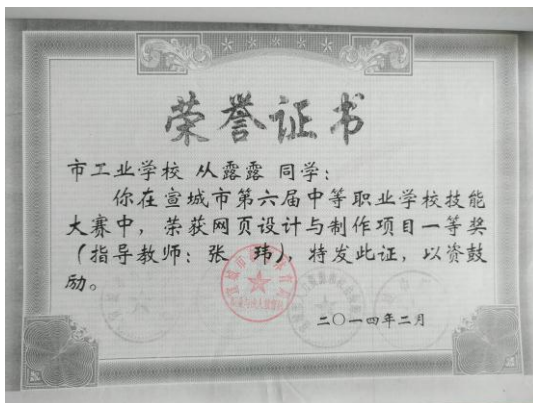 荣誉证书
市工业学校 从露露 同学：
你在宣城市第六届中等职业学校技能
大赛中，荣获网页设计与制作项目一等奖
（指导教师：张 玮），特发此证，以资鼓
励。
二〇一四年二月